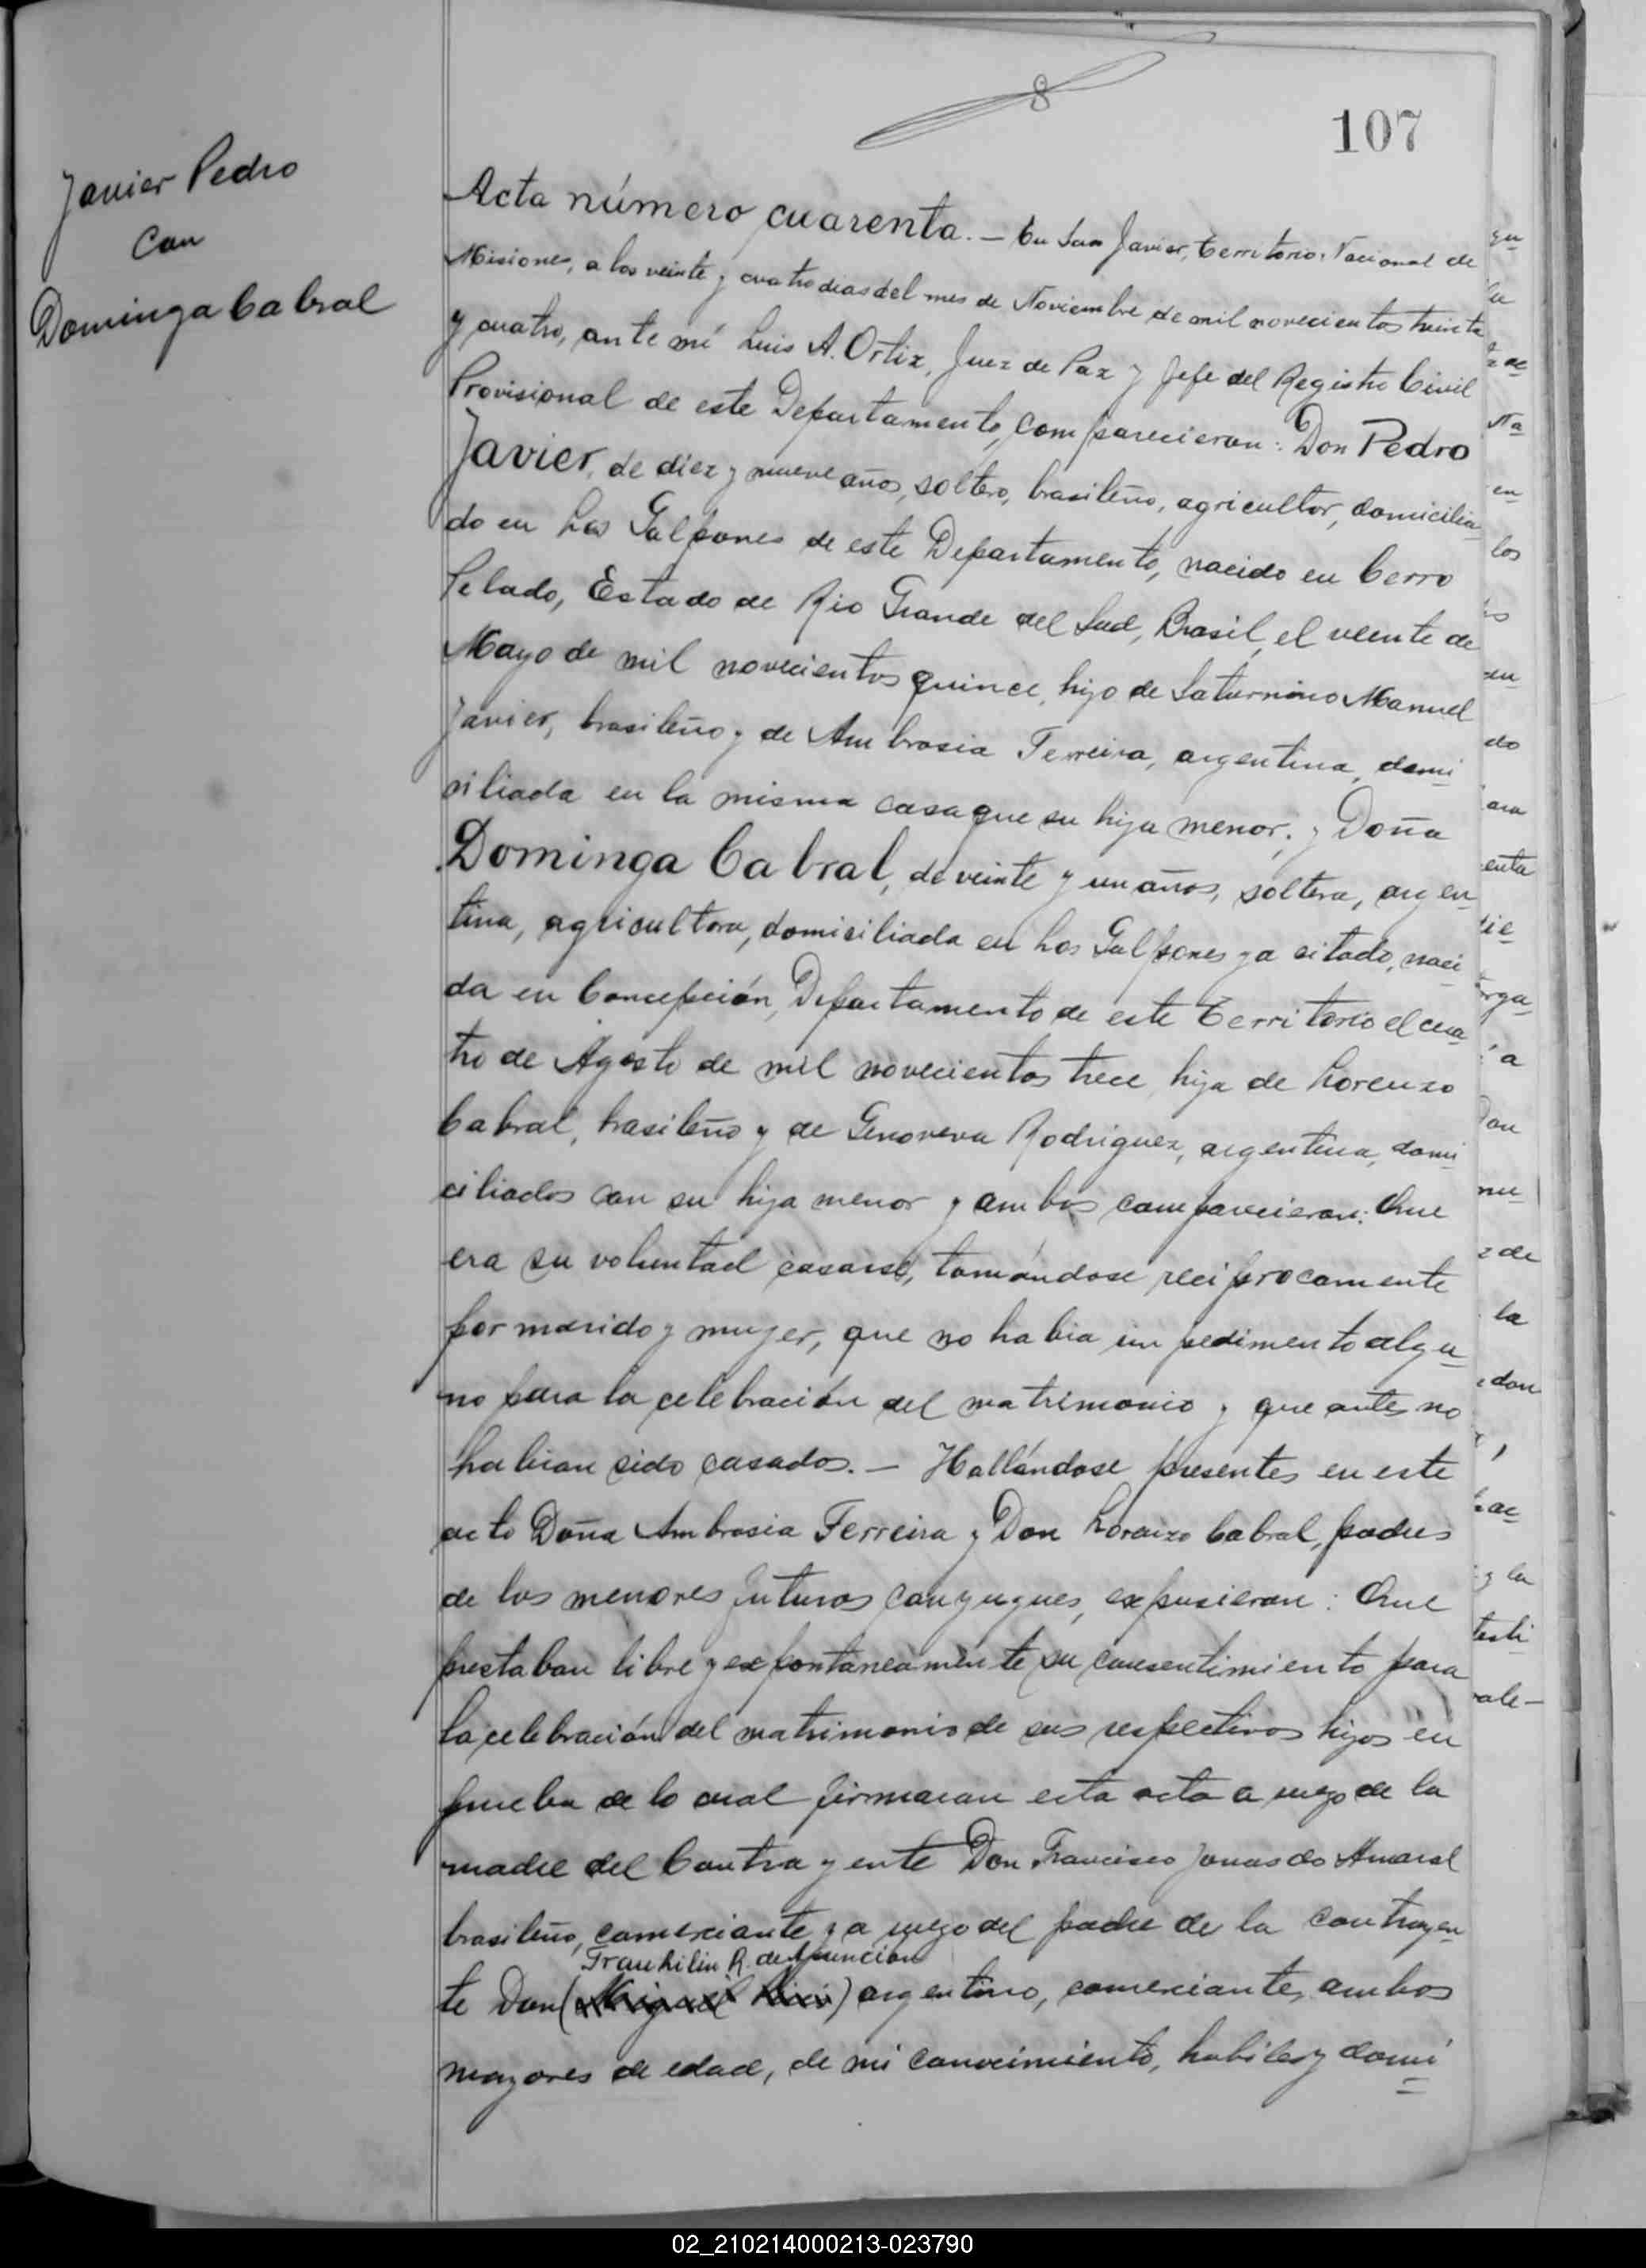 8
107
Javier Pedro
con
Dominga Cabral
Acta número cuarenta. — En San Javier, Territorio Nacional de
Misiones, a los veinte y cuatro dias del mes de Noviembre de mil novecientos treinta
y cuatro, ante mí Luis A. Ortiz, Juez de Paz y Jefe del Registro Civil
Provisional de este Departamento, comparecieron: Don Pedro
Javier, de diez y nueve años, soltero, brasileño, agricultor, domicilia
do en Los Galpones de este Departamento, nacido en Cerro
Pelado, Estado de Rio Grande del Sud, Brasil, el veinte de
Mayo de mil novecientos quince, hijo de Saturnino Manuel
Javier, brasileño y de Ambrosia Ferreira, argentina, domi
siliada en la misma casa que su hijo menor; y Doña
Dominga Cabral, de veinte y un años, soltera, argen
tina, agricultora, domisiliada en Los Galpones ya citado, naci
da en Concepción, Departamento de este Territorio el cua
tro de Agosto de mil novecientos trece, hija de Lorenzo
Cabral, brasileño y de Genoveva Rodriguez, argentina, domi
ciliados con su hija menor y ambos comparecieron: Que
era su voluntad casarse, tomándose reciprocamente
por marido y mujer, que no habia impedimento algu
no para la celebración del matrimonio y que antes no
habian sido casados. — Hallándose presentes en este
acto Doña Ambrosia Ferreira y Don Lorenzo Cabral, padres
de los menores futuros conyugues, expusieron: Que
prestaban libre y expontáneamente su consentimiento para
la celebración del matrimonio de sus respectivos hijos en
prueba de lo cual firmaran esta acta a ruego de la
madre del Contrayente Don Francisco Jonas do Amaral
brasileño, comerciante y a ruego del padre de la contrayen
Frankilin R. de Asuncion
te Don (Miguel) argentino, comerciante, ambos
mayores de edad, de mi conocimiento, habiles y domi
02_210214000213-023790